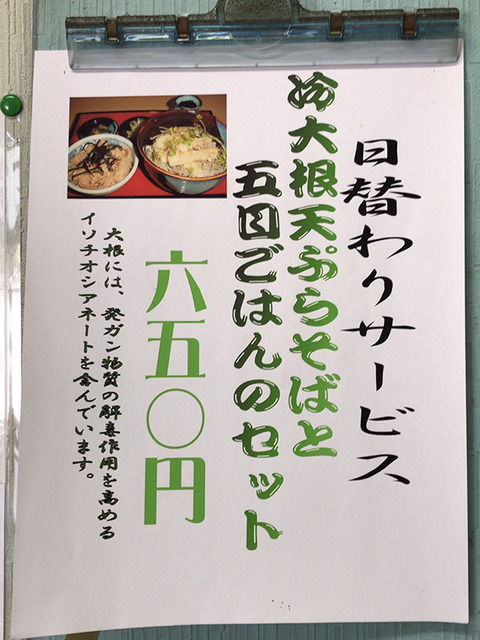 日替わりサービス
冷大根天ぷらそばと
五目ごはんのセット
六五〇円
大根には、発ガン物質の解毒作用を高める
イソチオシアネートを含んでいます。